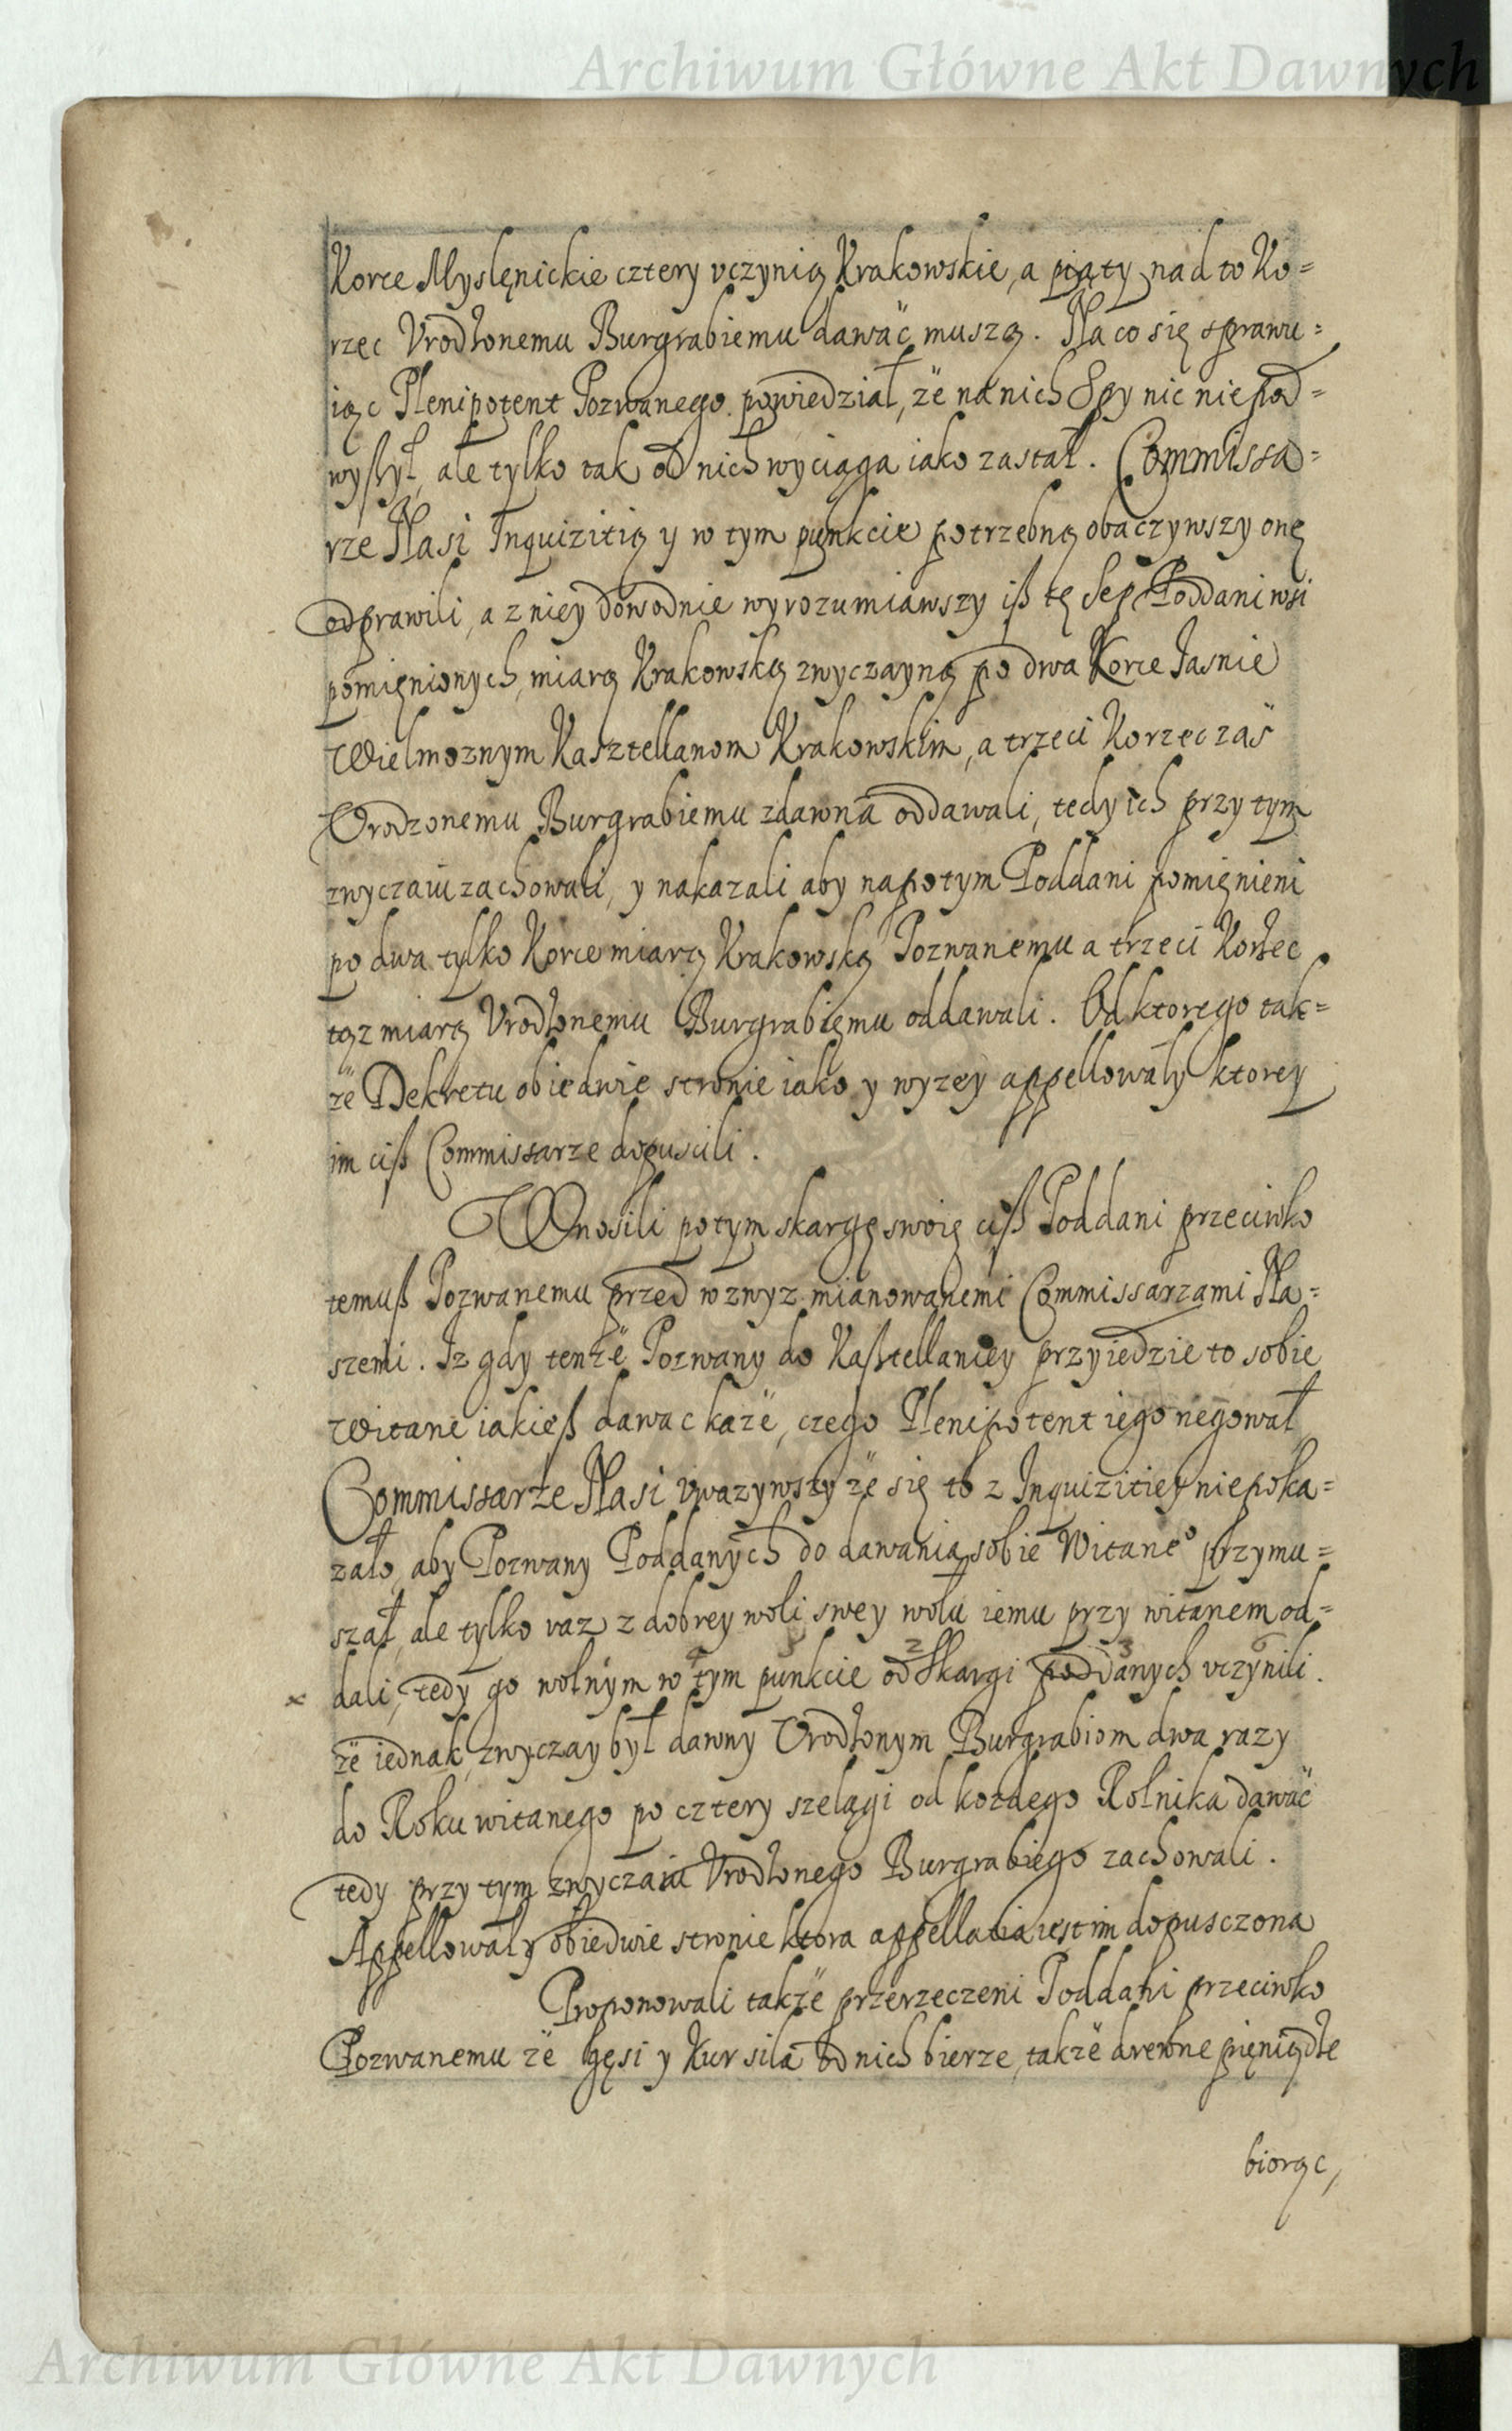 Archiwum Główne Akt Dawnych
Korce Myslęnickie cztery vczynią Krakowskie, a piąty nad to Ko=
rzec Vrodzonemu Burgrabiemu dawać muszą. Na co się sprawu=
iąc Plenipotent Pozwanego powiedział, że na nich Sepy nic nie pod=
wyszył, ale tylko tak od nich wyciąga iako zastał. Commissa=
rze Nasi Inquizitią y w tym punkcie potrzebną obaczywszy onę
odprawili, a z niey dowodnie wyrozumiawszy iß tę Sep Poddani wsi
pomięnionych, miarą Krakowską zwyczayną po dwa Korce Jasnie
Wielmoznym Kasztellanom Krakowskim, a trzeci Korzec zaś
Vrodzonemu Burgrabiemu zdawna oddawali, tedy ich przy tym
zwyczaiu zachowali, y nakazali aby napotym Poddani pomięnieni
po dwa tylko Korce miarą Krakowską Pozwanemu a trzeci Korzec
tąz miarą Vrodzonemu Burgrabięmu oddawali. Od ktorego tak=
że Dekretu obiedwie stronie iako y wyzey appellowały ktorey
im ciß Commissarze dopuscili.
Wnosili potym skargę swoię ciß Poddani przeciwko
temuß Pozwanemu przed wzwyz mianowanemi Commissarzami Na=
szemi. Iz gdy tenże Pozwany do Kasztellaniey przyiedzie to sobie
Witane iakieß dawac każe, czego Plenipotent iego negował
Commissarze Nasi vwazywszy że się to z Inquizitiey nie poka=
zało, aby Pozwany Poddanych do dawania sobie Witane⁰ przymu=
szał, ale tylko raz z dobrey woli swey wołu iemu przy witanem od=
dali, tedy go wolnym w tym punkcie od skargi poddanych vczynili.
że iednak zwyczay był dawny Vrodzonym Burgrabiom dwa razy
do Roku witanego po cztery szelągi od kozdego Rolnika dawać
tedy przy tym zwyczaiu Vrodzonego Burgrabiego zachowali.
Appellowały obiedwie stronie ktora appellatia iest im dopusczona
Proponowali także przerzeczeni Poddani przeciwko
Pozwanemu że gęsi y Kur siła od nich bierze, także drewne pięniądze
biorąc,
Archiwum Główne Akt Dawnych